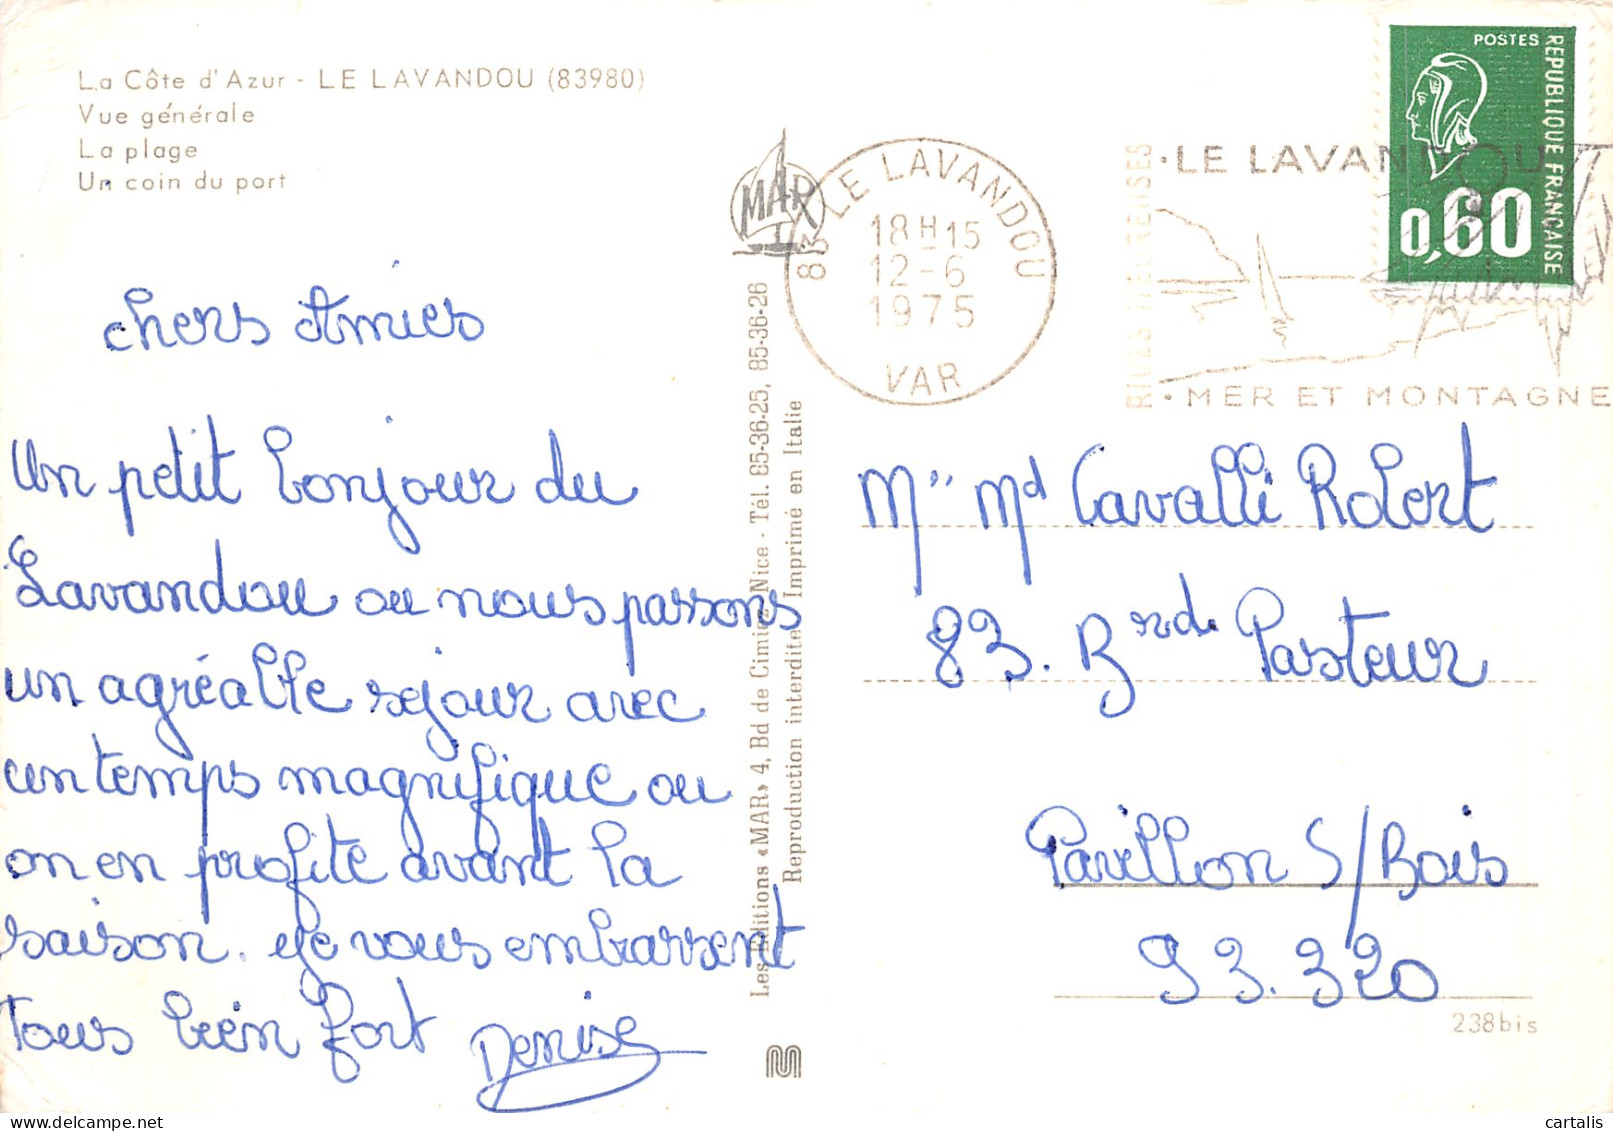 La Côte d'Azur - LE LAVANDOU (83980)
Vue générale
La plage
Un coin du port
MAR
83 LE LAVANDOU
18 H 15
12-6
1975
VAR
· LE LAVANDOU
· MER ET MONTAGNE
POSTES
REPUBLIQUE FRANÇAISE
0,60
chers Amies
Un petit bonjour du
Lavandou ou nous passons
un agréable sejour avec
un temps magnifique ou
on en profite avant la
saison. Je vous embrassent
Tous bien fort Denise
Les Editions «MAR» 4, Bd de Cimiez Nice - Tél. 85-36-25, 85-36-26
Reproduction interdite Imprimé en Italie
M" Md Cavalli Robert
83. Brd. Pasteur
Pavillon S/Bois
93.320
238bis
delcampe.net
cartalis